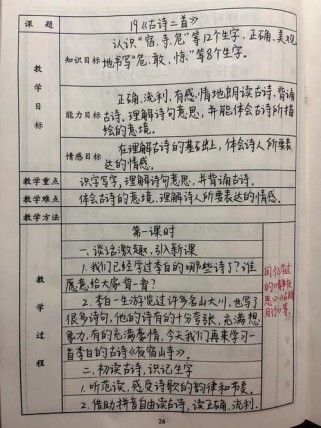 课题 19《古诗二首》
教学目标
知识目标 认识“宿、寺、危”等12个生字,正确、美观
地书写“危、敢、惊”等8个生字。
能力目标 正确、流利、有感情地朗读古诗,背诵
古诗,理解诗句意思,并能体会古诗所描
绘的意境。
情感目标 在理解古诗的基础上,体会诗人所要表
达的情感。
教学重点 识字写字,理解诗句意思,并背诵古诗。
教学难点 体会古诗的意境,理解诗人所要表达的情感。
教学方法
教学过程
第一课时
一、谈话激趣,引入新课
1.我们已经学过李白的哪些诗了?谁
愿意给大家背一背?
2.李白一生游览过许多名山大川,也写了
很多诗句,他的诗有的十分夸张,充满想
象力,有的充满豪情,今天我们再来学习一
首李白的古诗《夜宿山寺》。
二、初读古诗,识记生字
1.听范读,感受诗歌的韵律和节奏。
2.借助拼音自由读古诗,读正确、流利。
回忆学过
的《静夜
思》《古朗
月行》等。
26